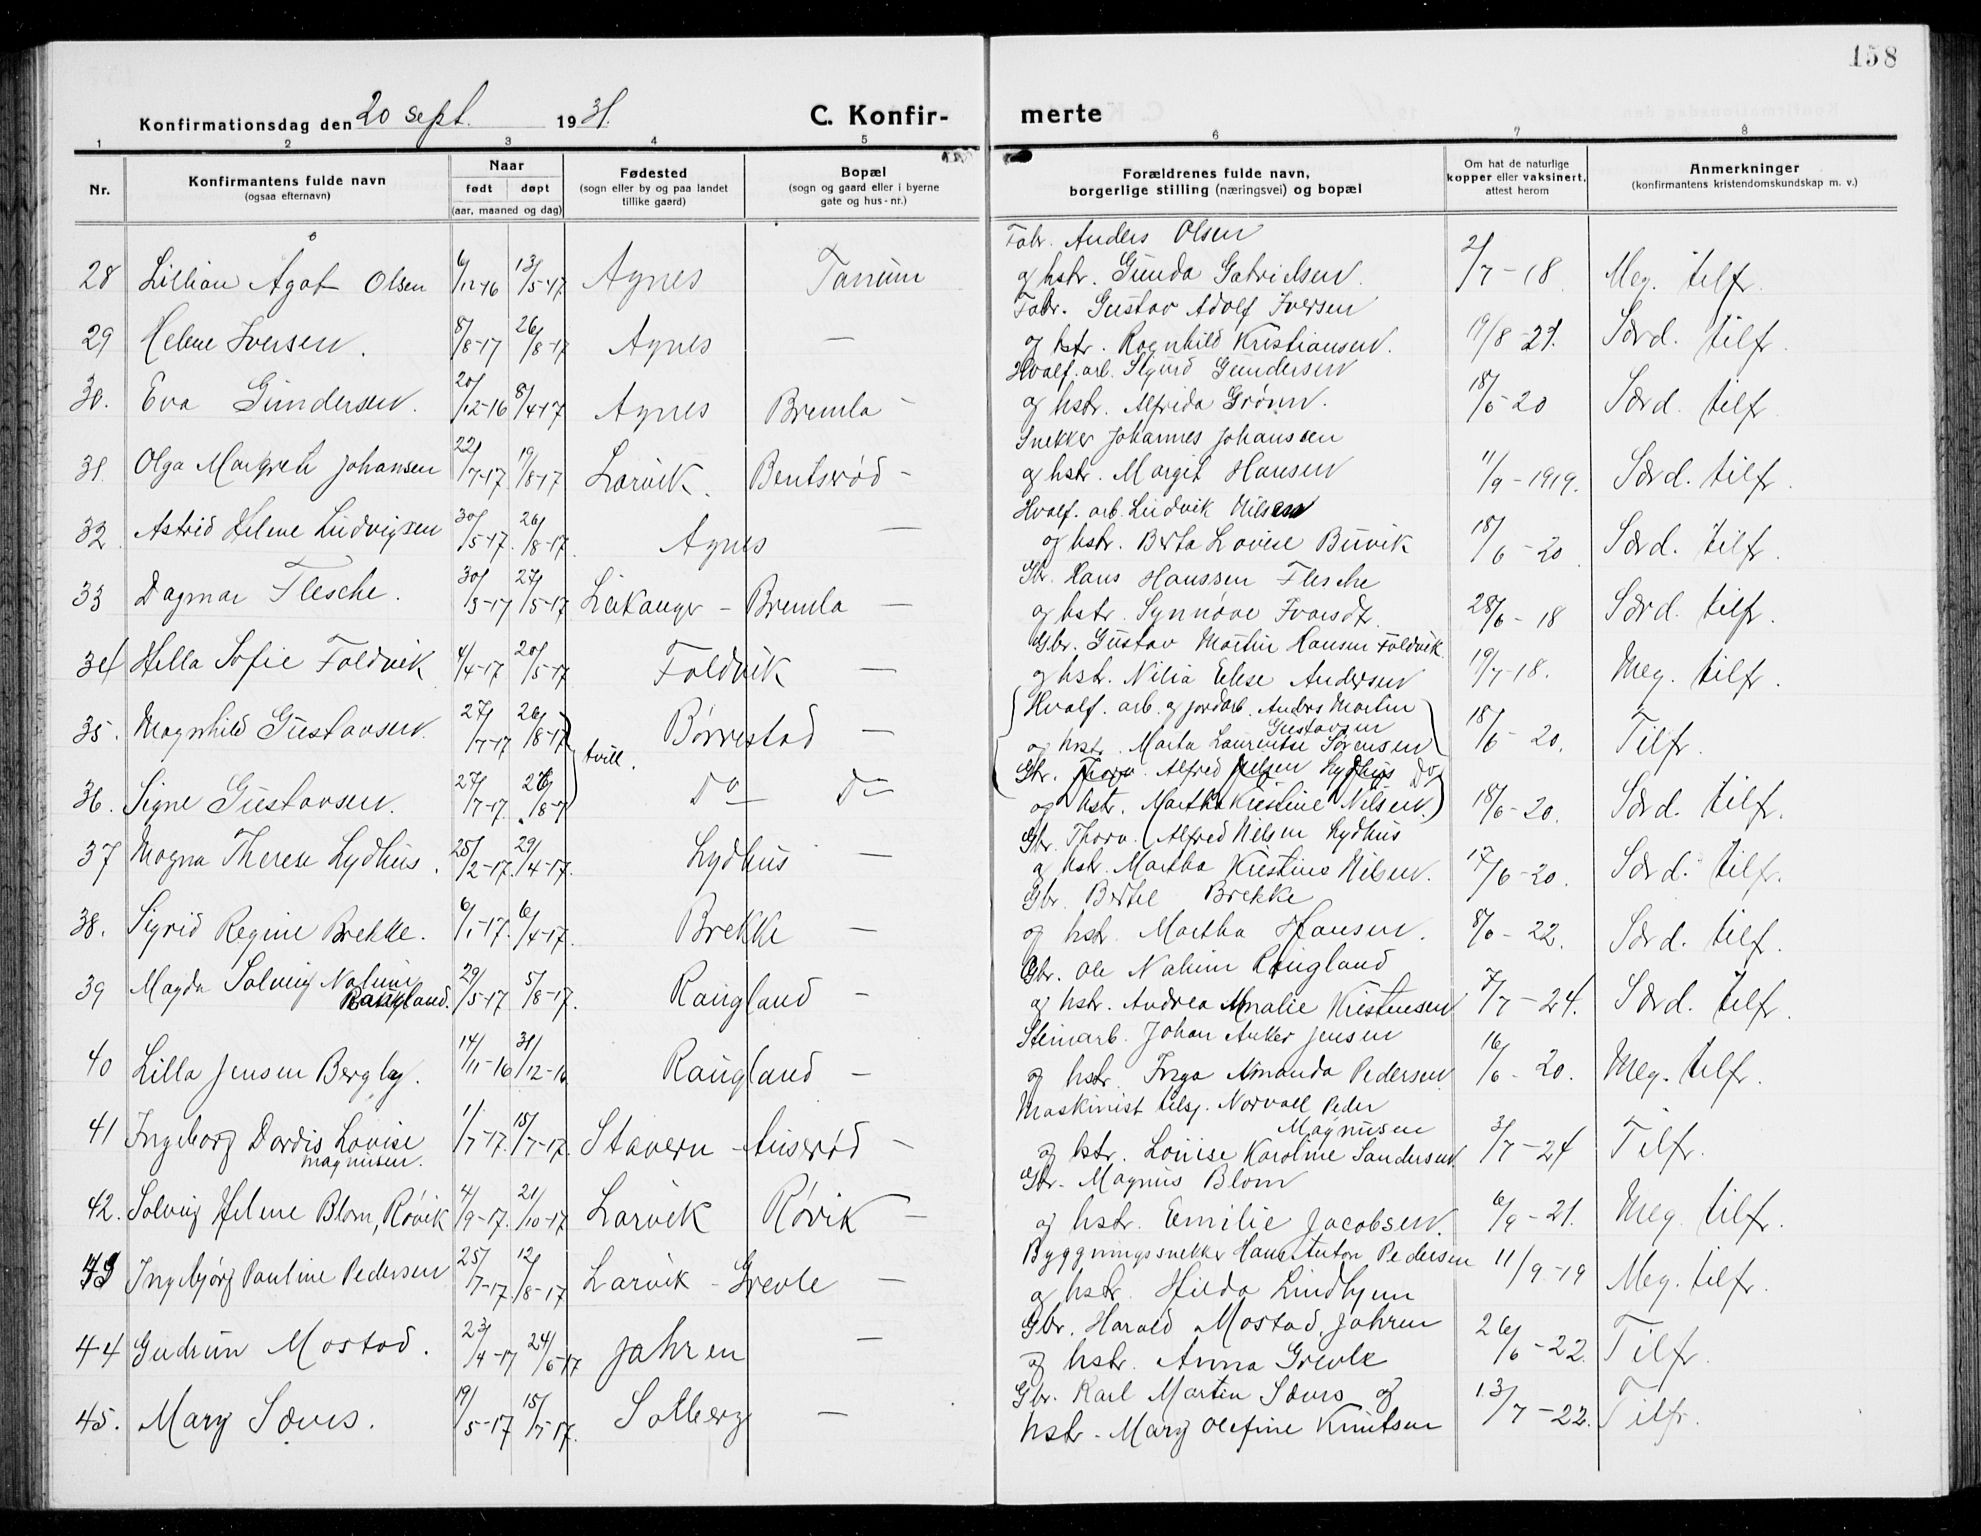 158
Konfirmationsdag den 20 sept. 1931.
C. Konfirmerte
1 2 3 4 5 6 7 8
Nr.
Konfirmantens fulde navn
(ogsaa efternavn)
Naar
født døpt
(aar, maaned og dag)
Fødested
(sogn eller by og paa landet
tillike gaard)
Bopæl
(sogn og gaard eller i byerne
gate og hus-nr.)
Forældrenes fulde navn,
borgerlige stilling (næringsvei) og bopæl
Om hat de naturlige
kopper eller vaksinert,
attest herom
Anmerkninger
(konfirmantens kristendomskundskap m. v.)
Fabr. Anders Olsen
28 Lillian Ågot Olsen 6/12-16 13/5-17 Agnes Tanum og hstr. Gunda Gabrielsen. 2/7-18 Meg. tilfr.
Fabr. Gustav Adolf Iversen
29 Helene Iversen. 8/8-17 26/8-17 Agnes — og hstr. Ragnhild Kristiansen. 19/8-21. Særd. tilfr.
Hvalf. arb. Sigurd Gundersen
30. Eva Gundersen. 20/12-16 8/4-17 Agnes Bremla - og hstr. Alfrida Grønn. 18/6-20 Særd. tilfr.
Snekker Johannes Johanssen
31. Olga Margreth Johansen 22/7-17 19/8-17 Larvik. Bentsrød - og hstr. Margit Hansen 11/9-1919. Særd. tilfr.
Hvalf. arb. Ludvik Nilsen
32. Astrid Helene Ludvigsen 30/5-17. 26/8-17. Agnes — og hstr. Berta Lovise Buvik 18/6-20 Særd. tilfr.
Gbr. Hans Hanssen Flesche
33 Dagmar Flesche. 30/3-17 27/5-17 Leikanger - Bremla — og hstr. Synnøve 28/6-18 Særd. tilfr.
Gbr. Gustav Martin Hansen Foldvik.
34 Hella Sofie Foldvik 4/4-17 20/5-17 Foldvik — og hstr. Nilia Elise Andersen 19/7-18. Meg. tilfr.
Hvalf. arb. og jordarb. Anders Martin
Gustavsen
35. Magnhild Gustavsen. 27/7-17 26/8-17 tvill. Børrestad — og hstr. Marta Laurentse Sørensen 18/6-20. Tilfr.
Gbr. Thorv. Alfred Nilsen Lydhus Do
36. Signe Gustavsen. 27/7-17. 26/8-17 Do Do og hstr. Martha Kristine Nilsen. 18/6-20. Særd. tilfr.
Gbr. Thorv. Alfred Nilsen Lydhus
37 Magna Therese Lydhus. 25/2-17. 29/4-17. Lydhus — og hstr. Martha Kristine Nilsen. 17/6-20. Særd. tilfr.
Gbr. Bertel Brekke
38. Sigrid Regine Brekke. 6/1-17. 6/4-17. Brekke — og hstr. Martha Hansen. 8/6-22. Særd. tilfr.
Gbr. Ole Nalum Raugland
39 Magda Solveig Nalum
Raugland. 29/5-17 5/8-17. Raugland — og hstr. Andrea Amalie Kristensen 7/7-24. Særd. tilfr.
Steinarb. Johan Anker Jensen
40 Lilla Jensen Bergby. 14/11-16 31/12-16 Raugland — og hstr. Inga Amanda Pedersen 16/6-20. Meg. tilfr.
Maskinist tilsj. Norvall Peder
Magnusen
41 Ingeborg Dordis Lovise
Magnusen. 1/7-17. 15/7-17. Stavern - Auserød - og hstr. Louise Karoline Sandersen 3/7-24 Tilfr.
Gbr. Magnus Blom
42. Solveig Helene Blom, Røvik 4/9-17. 21/10-17 Larvik Røvik — og hstr. Emilie Jacobsen. 6/9-21. Meg. tilfr.
Byggningssnekker Hans Anton Pedersen
43 Ingebjørg Pauline Pedersen 25/7-17. 12/8-17 Larvik - Grevle — og hstr. Hilda Lindhjem 11/9-19 Meg. tilfr.
Gbr. Harald Mostad, Jahren
44 Gudrun Mostad. 23/4-17 24/6-17 Jahren — og hstr. Anna Grevle 26/6-22. Tilfr.
Gbr. Karl Martin Sæves og
45. Mary Sæves. 19/5-17 15/7-17. Solberg — hstr. Mary Olefine Knutsen 13/7-22. Tilfr.